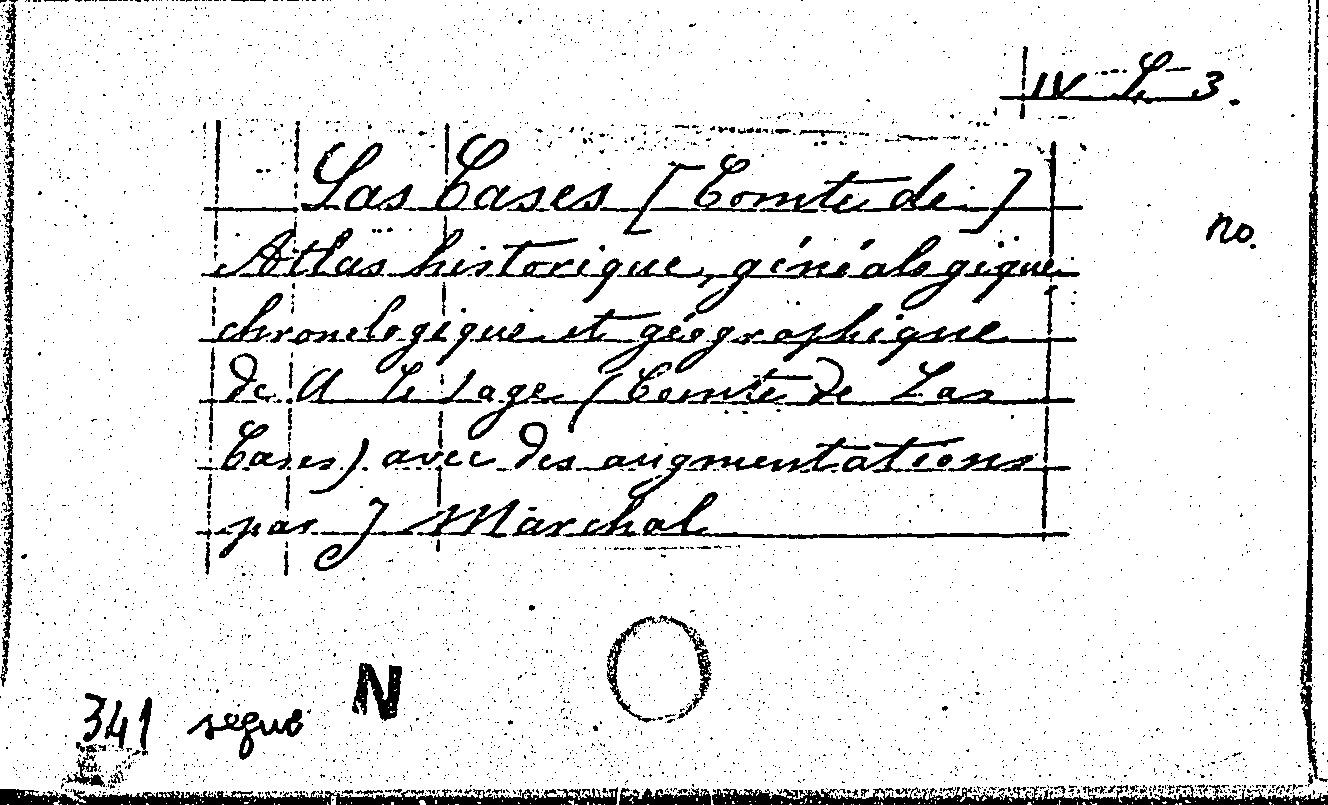 IV L 3.
Las Cases [Comte de]
no.
Atlas historique, généalogique
chronologique et géographique
de A Le Sage (Comte de Las
Cases) avec des augmentations
par J Marchal
341 segue N